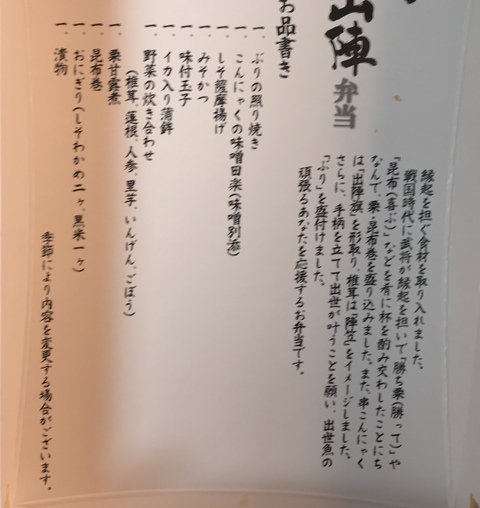 出陣
弁当
縁起を担ぐ食材を取り入れました。
戦国時代に武将が縁起を担いで「勝ち栗(勝って)」や
「昆布(喜ぶ)」などを肴に杯を酌み交わしたことにち
なんで、栗・昆布巻を盛り込みました。また、串こんにゃく
は「出陣旗」を形取り、椎茸は「陣笠」をイメージしました。
さらに、手柄を立てて出世が叶うことを願い、出世魚の
「ぶり」を盛付けました。
頑張るあなたを応援するお弁当です。
お品書き
一、ぶりの照り焼き
一、こんにゃくの味噌田楽(味噌別添)
一、しそ薩摩揚げ
一、みそかつ
一、味付玉子
一、イカ入り蒲鉾
一、野菜の炊き合わせ
(椎茸、蓮根、人参、里芋、いんげん、ごぼう)
一、栗甘露煮
一、昆布巻
一、おにぎり(しそわかめ二ヶ、黒米一ヶ)
一、漬物
季節により内容を変更する場合がございます。